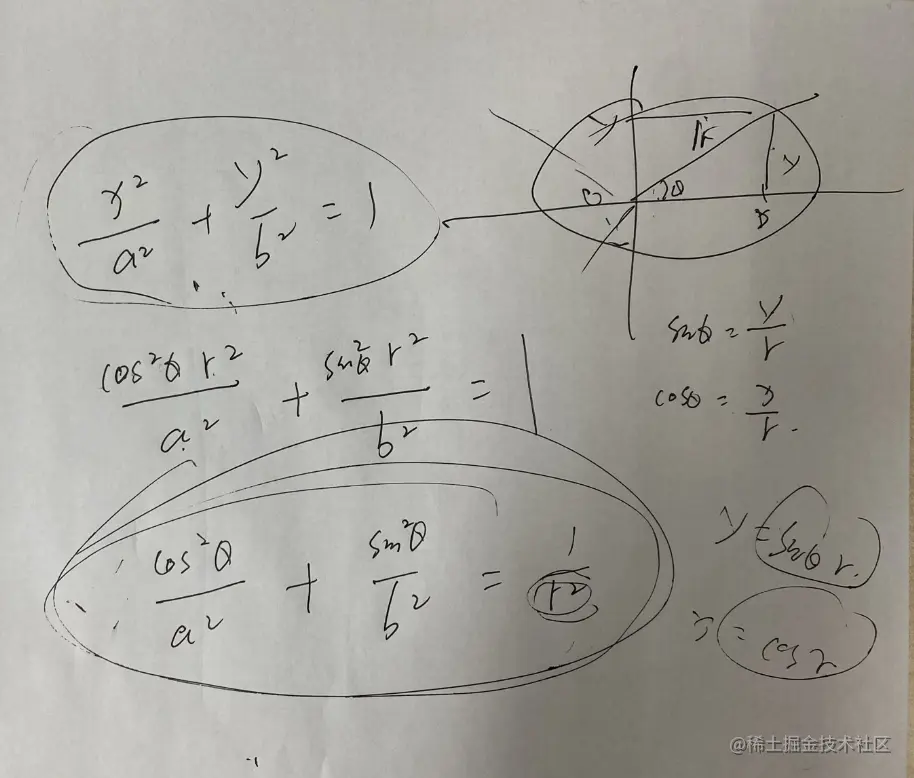 x²/a² + y²/b² = 1
y
r
y
θ
x
sinθ = y/r
cosθ = x/r.
cos²θ r²/a² + sin²θ r²/b² = 1
cos²θ/a² + sin²θ/b² = 1/r²
y = sinθ r.
x = cos r
@稀土掘金技术社区